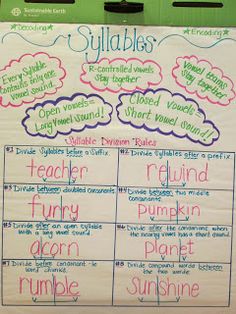 Sustainable Earth
Decoding
Encoding
Syllables
Every syllable
contains only one
vowel sound!
R-controlled vowels
stay together
Vowel teams
stay together
Open vowels =
Long Vowel Sound!
Closed Vowels =
Short vowel Sound!!
Syllable Division Rules
#1 Divide Syllables before a suffix.
teacher
#2 Divide Syllables after a prefix.
rewind
#3 Divide between doubled consonants.
funny
between two middle
consonants.
pumpkin
#5 Divide after an open syllable
with a long vowel sound.
acorn
the vowel has a short sound.
planet
#7 Divide before consonant -le
rumble
Divide compound words between
the two words.
sunshine